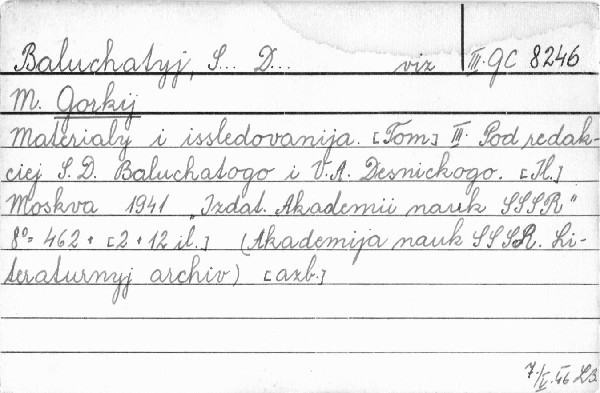 Baluchatyj, S... D... viz III. GC 8246
M. Gorkij
Materialy i issledovanija. [Tom] III. Pod redak-
ciej S. D. Baluchatogo i V. A. Desnickogo. [Il.]
Moskva 1941 „Izdat. Akademii nauk SSSR"
8º= 462 + [2 + 12 il.] (Akademija nauk SSSR. Li-
teraturnyj archiv) [azb.]
7./V. 46 LB